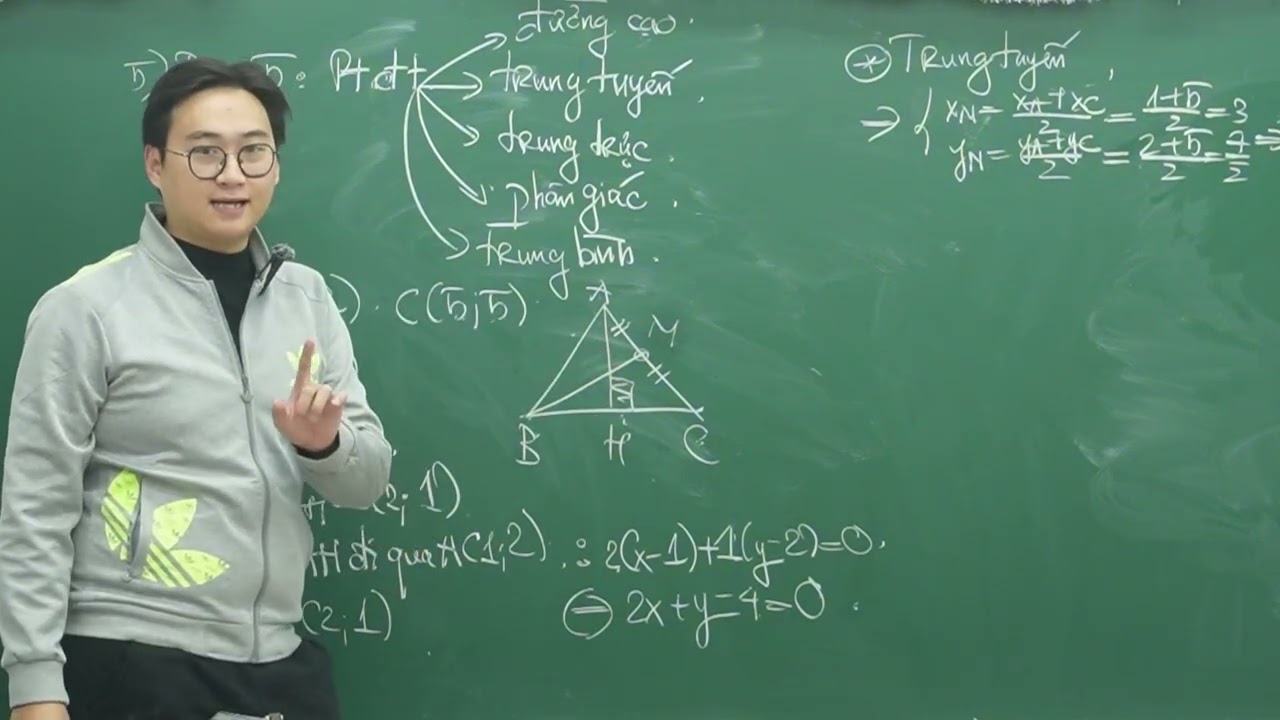 5) 5: Ptđt
đường cao.
trung tuyến.
trung trực.
phân giác.
trung bình.
) . C(5;5)
A
M
B H C
(2; 1)
AH đi qua A(1;2) : 2(x-1)+1(y-2)=0.
(2;1)
⇔ 2x+y-4=0.
* Trung tuyến
⇒ { xN = xA+xC/2 = 1+5/2 = 3
yN = yA+yC/2 = 2+5/2 = 7/2 ⇒